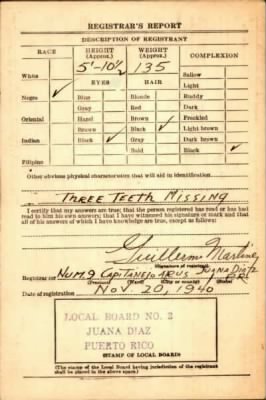 REGISTRAR'S REPORT
DESCRIPTION OF REGISTRANT
RACE HEIGHT (Approx.) WEIGHT (Approx.) COMPLEXION
5'-10½ 135
White Sallow
EYES HAIR Light
Negro ✓ Blue Blonde Ruddy
Gray Red Dark
Oriental Hazel Brown Freckled
Brown Black ✓ Light brown
Indian Black ✓ Gray Dark brown
Bald Black ✓
Filipino
Other obvious physical characteristics that will aid in identification
THREE TEETH MISSING
I certify that my answers are true; that the person registered has read or has had read to him his own answers; that I have witnessed his signature or mark and that all of his answers of which I have knowledge are true, except as follows:
Guillermo Martínez
(Signature of registrar)
Registrar for NUM.9 CAPITANEJO JUANA DIAZ P.R.
(Precinct) (Ward) (City or county) (State)
Date of registration NOV. 20, 1940
LOCAL BOARD NO. 2
JUANA DIAZ
PUERTO RICO
(STAMP OF LOCAL BOARD)
(The stamp of the Local Board having jurisdiction of the registrant
shall be placed in the above space.)